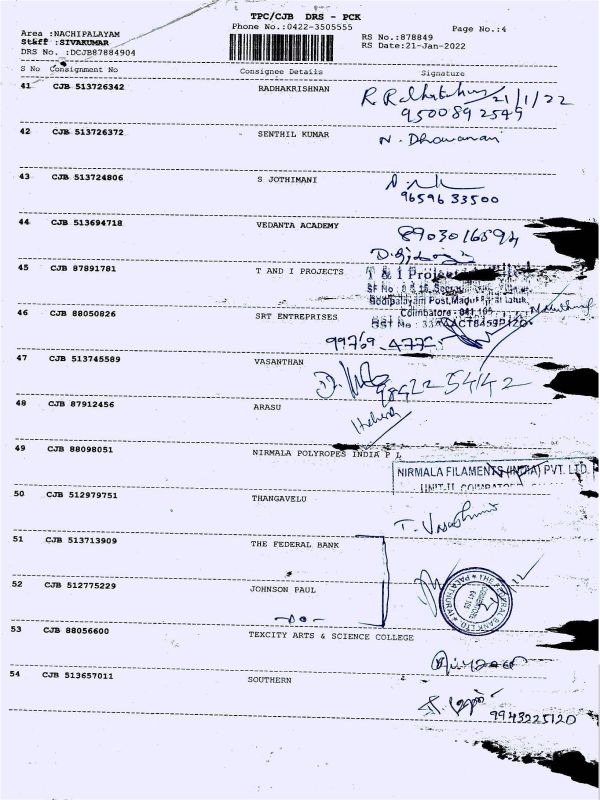 TPC/CJB DRS - PCK
Phone No.:0422-3505555
Page No.:4
Area :NACHIPALAYAM
Staff :SIVAKUMAR
DRS No. :DCJB87884904
RS No.:878849
RS Date:21-Jan-2022
S No Consignment No Consignee Details Signature
41 CJB 513726342 RADHAKRISHNAN
21/1/22
9500892549
42 CJB 513726372 SENTHIL KUMAR
N. Dhavanani
43 CJB 513724806 S JOTHIMANI
9659633500
44 CJB 513694718 VEDANTA ACADEMY
8903016594
45 CJB 87891781 T AND I PROJECTS
T & I Projects
Coimbatore - 641 105
46 CJB 88050826 SRT ENTREPRISES
47 CJB 513745589 VASANTHAN
48 CJB 87912456 ARASU
49 CJB 88098051 NIRMALA POLYROPES INDIA P L
NIRMALA FILAMENTS (INDIA) PVT. LTD.
UNIT-II, COIMBATORE
50 CJB 512979751 THANGAVELU
51 CJB 513713909 THE FEDERAL BANK
52 CJB 512775229 JOHNSON PAUL
-Do-
53 CJB 88056600 TEXCITY ARTS & SCIENCE COLLEGE
54 CJB 513657011 SOUTHERN
9943225120